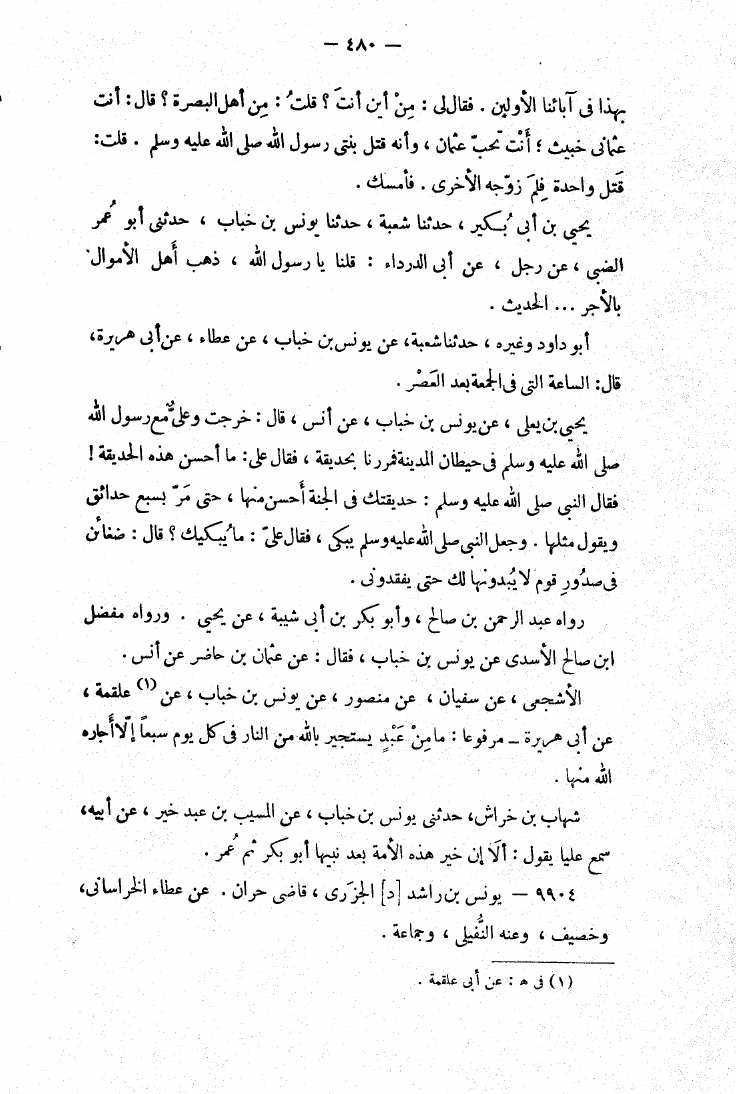 — ٤٨٠ —
بهذا فى آبائنا الأولين . فقال لى : مِنْ أين أنتَ ؟ قلتُ : مِن أهل البصرة ؟ قال : أنت
عثمانى خبيث ؛ أَنْت تحبّ عثمان ، وأنه قتل بنتى رسول الله صلى الله عليه وسلم . قلت :
قَتل واحدة فلِمَ زوّجه الأخرى . فأمسك .
يحيى بن أبى بُكير ، حدثنا شعبة ، حدثنا يونس بن خباب ، حدثنى أبو عُمر
الضبى ، عن رجل ، عن أبى الدرداء : قلنا يا رسول الله ، ذهب أهل الأموال
بالأجر ... الحديث .
أبو داود وغيره ، حدثنا شعبة ، عن يونس بن خباب ، عن عطاء ، عن أبى هريرة ،
قال : الساعة التى فى الجمعة بعد العَصْر .
يحيى بن يعلى ، عن يونس بن خباب ، عن أنس ، قال : خرجت وعلىٌّ مع رسول الله
صلى الله عليه وسلم فى حيطان المدينة فمررنا بحديقة ، فقال على : ما أحسن هذه الحديقة !
فقال النبى صلى الله عليه وسلم : حديقتك فى الجنة أَحسن منها ، حتى مَرّ بسبع حدائق
ويقول مثلها . وجعل النبى صلى الله عليه وسلم يبكى ، فقال علىّ : ما يُبكيك ؟ قال : ضغائن
فى صدُورِ قوم لا يُبدونها لك حتى يفقدونى .
رواه عبد الرحمن بن صالح ، وأبو بكر بن أبى شيبة ، عن يحيى . ورواه مفضل
ابن صالح الأسدى عن يونس بن خباب ، فقال : عن عثمان بن حاضر عن أنس .
الأشجعى ، عن سفيان ، عن منصور ، عن يونس بن خباب ، عن (١) علقمة ،
عن أبى هريرة ــ مرفوعا : ما مِنْ عَبْدٍ يستجير بالله من النار فى كل يوم سبعاً إلّا أَجاره
الله منها .
شهاب بن خراش ، حدثنى يونس بن خباب ، عن المسيب بن عبد خير ، عن أبيه ،
سمع عليا يقول : ألَا إن خير هذه الأمة بعد نبيها أبو بكر ثم عُمر .
٩٩٠٤ — يونس بن راشد [د] الجزَرى ، قاضى حران . عن عطاء الخراسانى ،
وخصيف ، وعنه النُّفيلى ، وجماعة .
(١) فى ه : عن أبى علقمة .